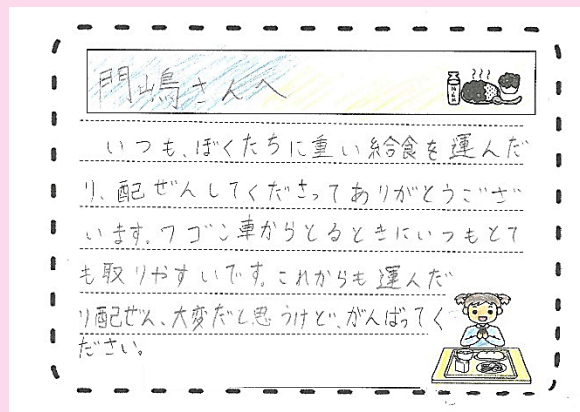 門嶋さんへ
いつも、ぼくたちに重い給食を運んだ
り、配ぜんしてくださってありがとうござ
います。ワゴン車からとるときにいつもとて
も取りやすいです。これからも運んだ
り配ぜん、大変だと思うけど、がんばってく
ださい。